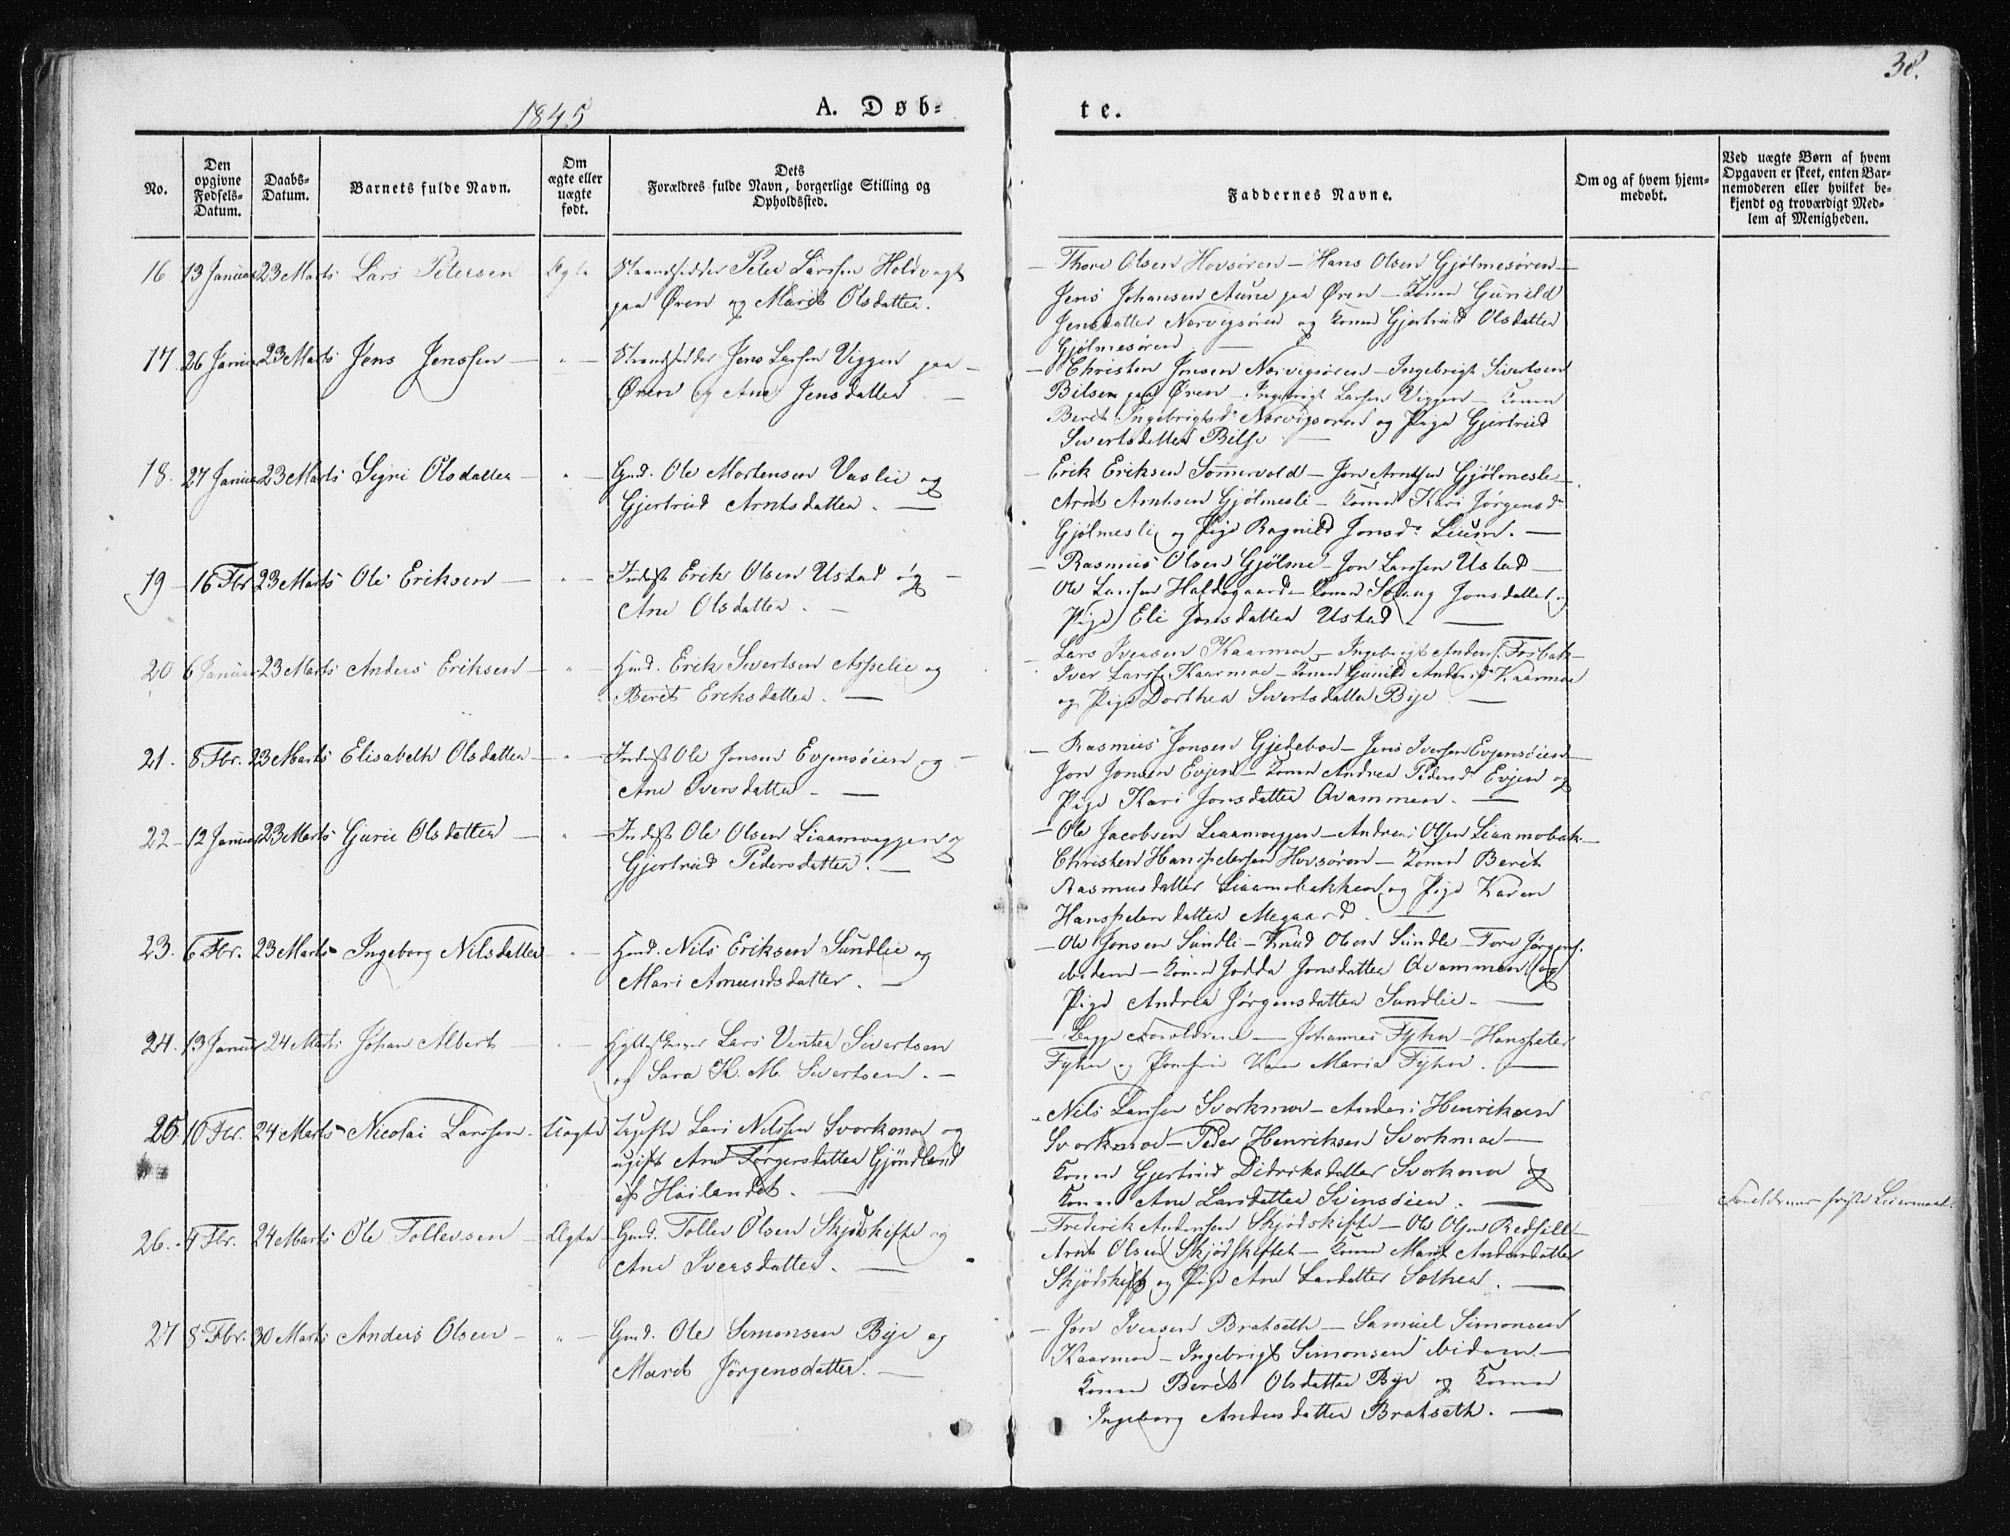 38.
1845
A. Døb-
te.
No.
Den opgivne Fødsels-Datum.
Daabs-Datum.
Barnets fulde Navn.
Om ægte eller uægte født.
Dets Forældres fulde Navn, borgerlige Stilling og Opholdssted.
Faddernes Navne.
Om og af hvem hjem-medøbt.
Ved uægte Børn af hvem Opgaven er skeet, enten Bar-nemoderen eller hvilket be-kjendt og troværdigt Med-lem af Menigheden.
16. 13 Januar 23 Marts Lars Petersen Ægte Strandsidder Peter Larssen Holdvagt
paa Øren og Marit Olsdatter.
— Thore Olsen Hovsøren — Hans Olsen Gjølmesøren —
Jens Johansen Aune paa Øren — Konen Gunild
Jensdatter Norvigsøren og Konen Gjertrud Olsdatter
Gjølmesøren.
17. 26 Januar 23 Marts Jens Jenssen — " — Strandsidder Jens Larsen Viggen paa —
Øren og Ane Jensdatter —
— Christen Jonsen Norvigsøren — Ingebrigt Sivertsen
Bilsen paa Øren — Ingebrigt Larsen Viggen — Konen
Berit Ingebrigtsdr Norvigsøren og Pige Gjertrud
Sivertsdatter Bilse —
18. 27 Januar 23 Marts Signi Olsdatter — " — Gmd. Ole Mortensen Vaslie og
Gjertrud Arntsdatter. —
— Erik Eriksen Sommervold — Jon Arntsen Gjølmesli —
Arnt Arntsen Gjølmesli — Konen Kari Jørgensdr
Gjølmesli og Pige Ragnild Jonsdr Lium. —
19 — 16 Fbr 23 Marts Ole Eriksen — " — Inderst Erik Olsen Ustad og —
Ane Olsdatter. —
— Rasmus Olsen Gjølme — Jon Larssen Ustad —
Ole Larsen — Konen Jonsdatter og
Pige Eli Jonsdatter Ustad. —
20 6 Januar 23 Marts Anders Eriksen — " — Hmd. Erik Sivertsen Asplie og
Berit Eriksdatter. —
— Lars Iversen Kaarmoe — Ingebrigt Anders. Forbak —
Iver Larss. Kaarmoe — Konen Gunild Andersdr Kaarmoe
og Pige Dorthea Sivertsdatter Bye —
21. 8 Fbr. 23 Marts Elisabeth Olsdatter — " — Inderst Ole Jonsen Evjensøien og —
Ane Iversdatter. —
— Rasmus Jonsen Gjedeboe — Jens Iversen Evjensøien —
Jon Jonsen Evjen — Konen Andrea Pedersdr Evjen og
Pige Kari Jonsdatter Qvammen. —
22 — 12 Januar 23 Marts Gurie Olsdatter — " — Inderst Ole Olsen Liaamoeggen og
Gjertrud Pedersdatter. —
— Ole Jacobsen Liaamoeggen — Andreas Olsen Liaamobak —
Christen Hanspetersen Hovsøren — Konen Berit
Rasmusdatter Liaamobakken og Pige Karen
Hanspetersdatter Megaard. —
23. 6 Fbr. 23 Marts Ingeborg Nilsdatter — " — Hmd. Nils Eriksen Sundlie og
Mari Amundsdatter. —
— Ole Jonsen Sundli — Knud Olsen Sundli — Tore Jørgens.
ibidem — Konen Jodda Jonsdatter Qvammen og
Pige Andrea Jørgensdatter Sundlie. —
24. 13 Januar 24 Marts Johan Albert — " — Lars Vinter Sivertsen
og Sara K. M. Sivertsen. —
— Begge Forældrene — Johannes Fyhn — Hanspeter
Fyhn og Jomfru Karen Maria Fyhn. —
25 10 Fbr. 24 Marts Nicolai Larssen Uægte Ugifte Lars Nilssen Svorkmoe og
ugift Ane Jørgensdatter Gjøndland
af Høilandet. —
— Nils Larsen Svorkmoe — Anders Henriksen
Svorkmoe — Peder Henriksen Svorkmoe —
Konen Gjertrud Didriksdatter Svorkmoe og
Konen Ane Larsdatter Svinsøien. —
Forældrenes første Leiermaal.
26. 4 Fbr. 24 Marts Ole Tollevsen — Ægte Gmd. Tollev Olsen Skjødskifte og
Ane Iversdatter. —
— Frederik Andersen Skjødskifte — Ole Olsen —
Arnt Olsen Skjødskiftet — Konen Marit Andersdatter
Skjødskift og Pige Ane Larsdatter Solhen. —
27 8 Fbr. 30 Marts Anders Olsen — " — Gmd. Ole Simonsen Bye og
Marit Jørgensdatter. —
— Jon Iversen Bratseth — Samuel Simonsen
Kaarmoe — Ingebrigt Simonsen ibidem —
Konen Berit Olsdatter Bye og Konen
Ingeborg Andersdatter Bratseth. —